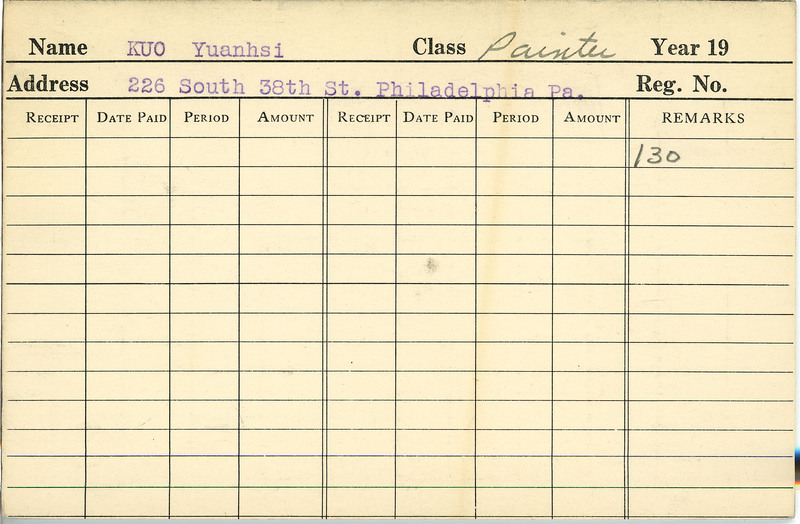 Name KUO Yuanhsi Class Painter Year 19
Address 226 South 38th St. Philadelphia Pa. Reg. No.
RECEIPT DATE PAID PERIOD AMOUNT RECEIPT DATE PAID PERIOD AMOUNT REMARKS
130